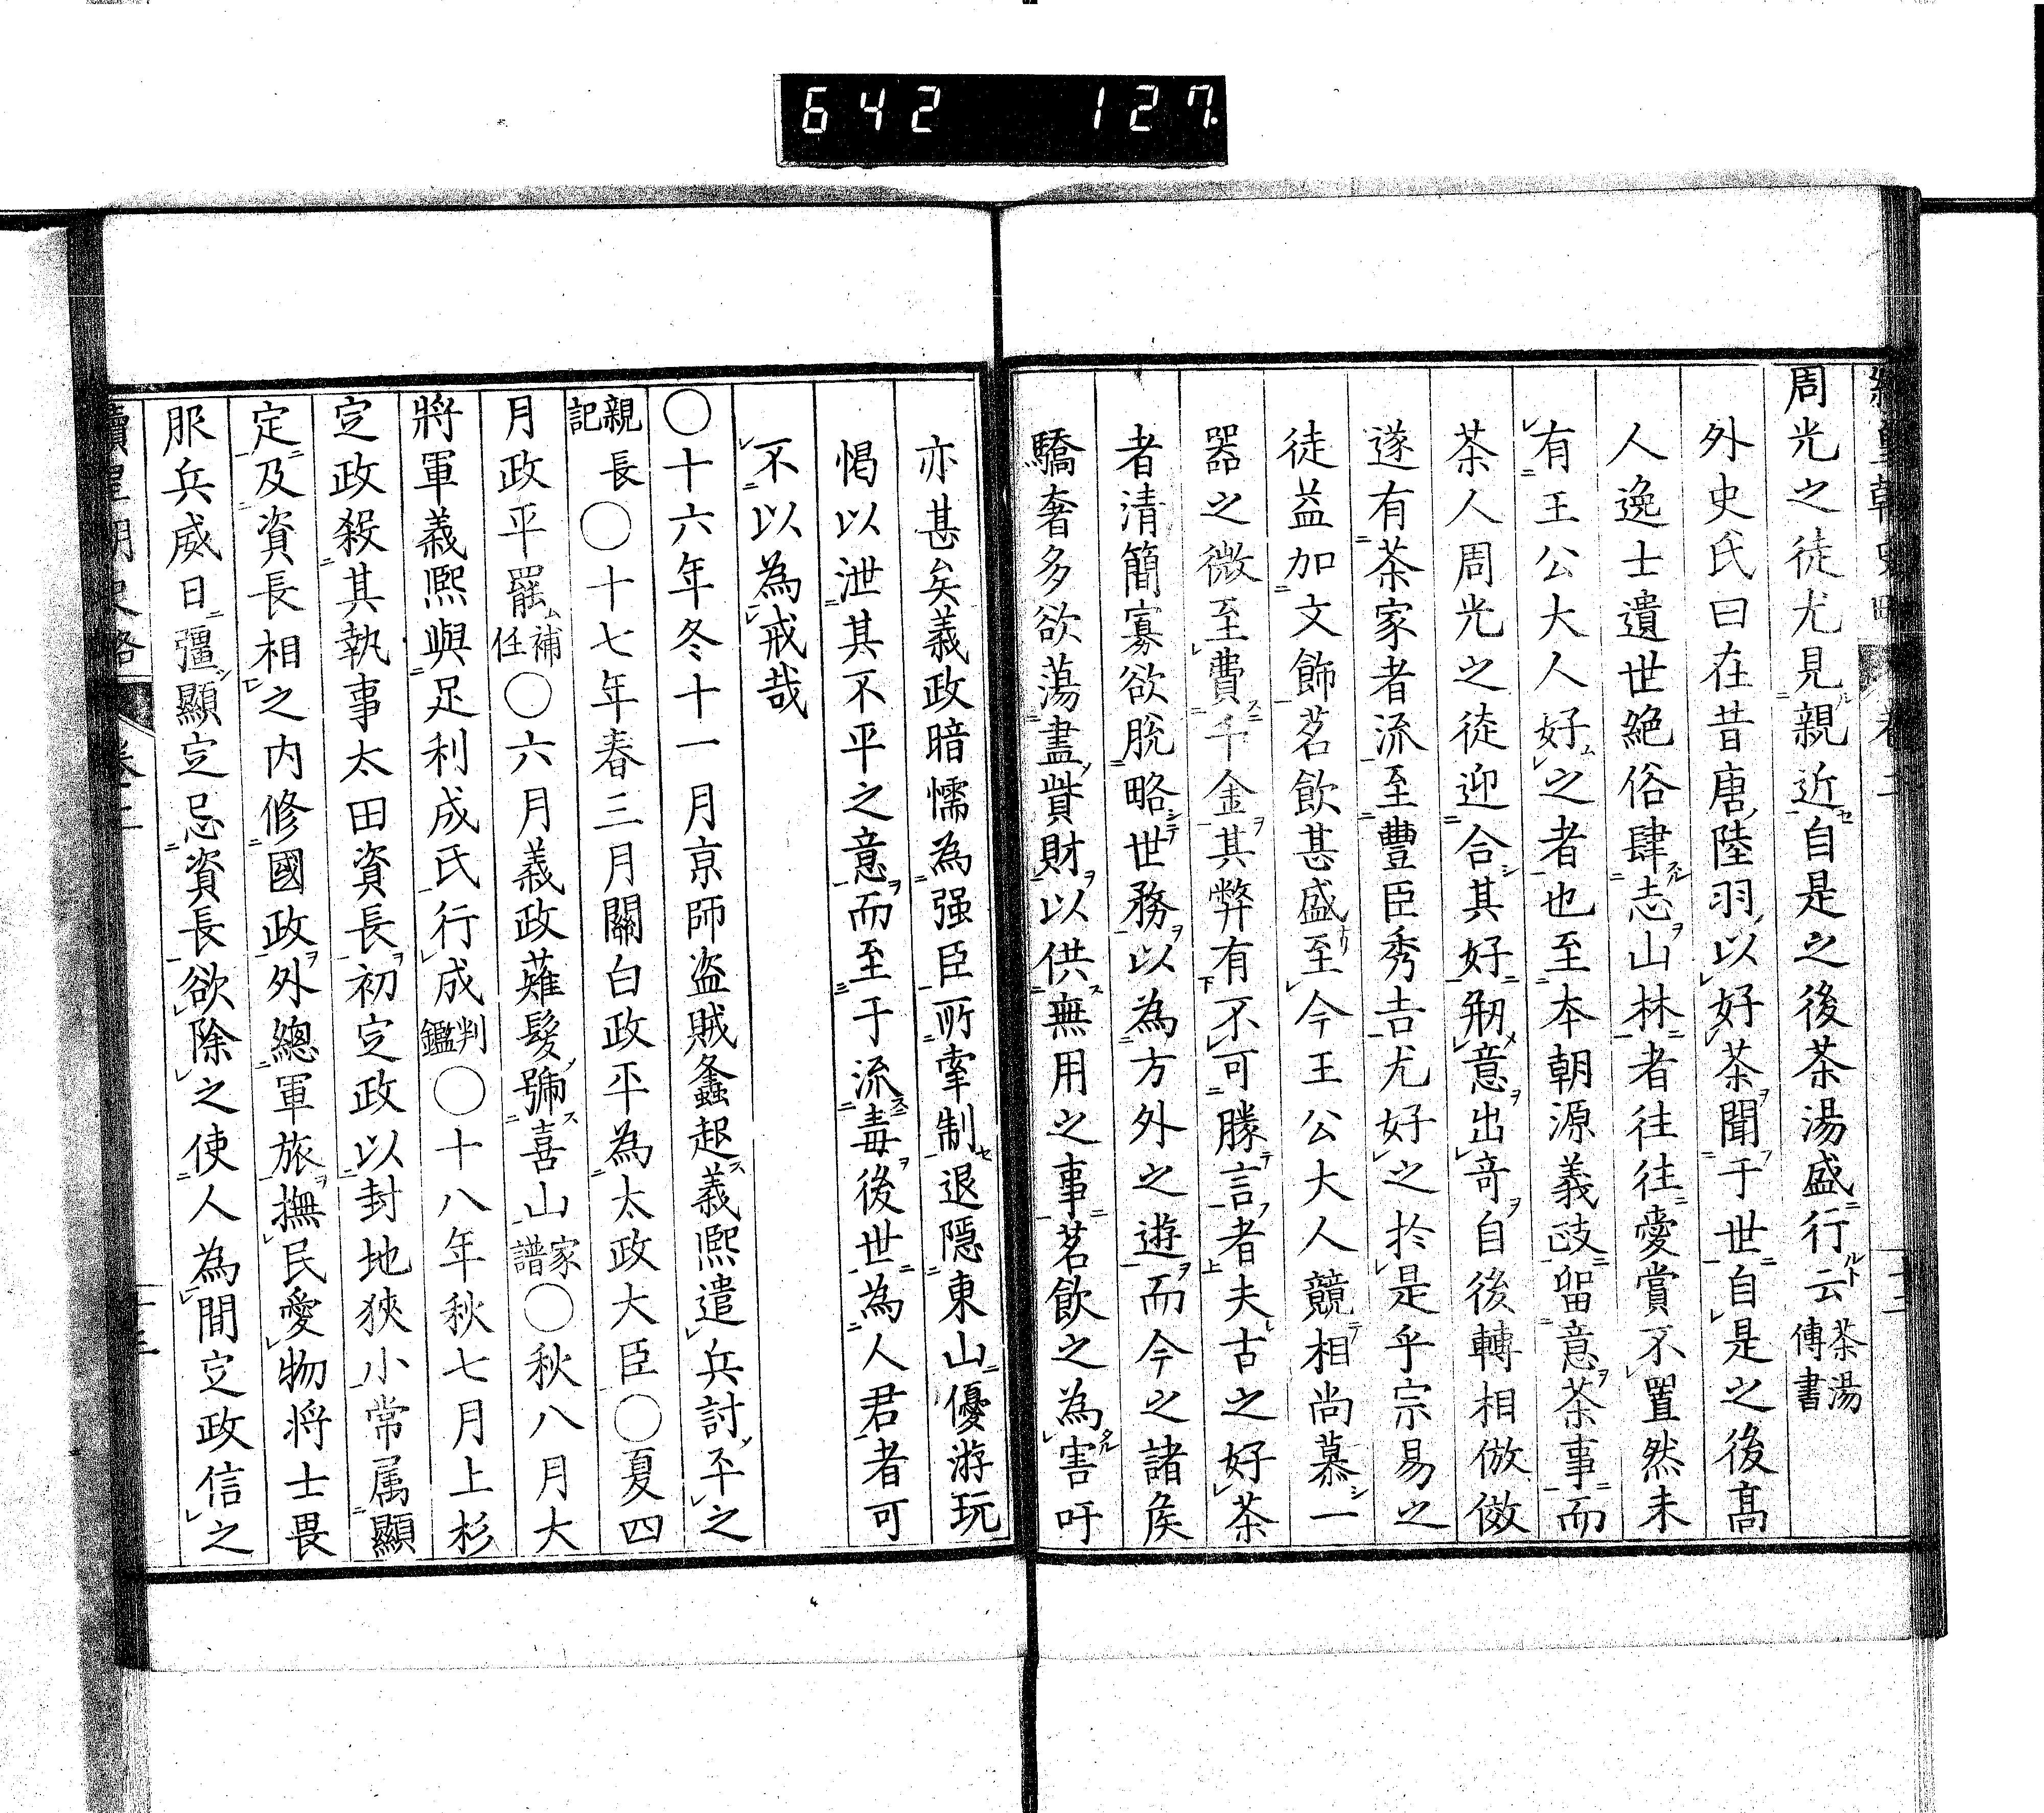 642 127
周光之徒尤見親近自是之後茶湯盛行云茶湯傳書
外史氏曰在昔唐陸羽以好茶聞于世自是之後髙
人逸士遺世絶俗肆志山林者往往愛賞不置然未
有王公大人好之者也至本朝源義政留意茶事而
茶人周光之徒迎合其好剏意出竒自後轉相倣傚
遂有茶家者流至豐臣秀吉尤好之於是乎宗易之
徒益加文飾茗飲甚盛至今王公大人競相尚慕一
器之微至費千金其弊有不可勝言者夫古之好茶
者清簡寡欲脫略世務以為方外之遊而今之諸侯
驕奢多欲蕩盡貲財以供無用之事茗飲之為害吁
亦甚矣義政暗懦為强臣所牽制退隱東山優游玩
愒以泄其不平之意而至于流毒後世為人君者可
不以為戒哉
〇十六年冬十一月京師盜賊螽起義熙遣兵討平之
親長記〇十七年春三月關白政平為太政大臣〇夏四
月政平罷補任〇六月義政薙髮號喜山家譜〇秋八月大
將軍義熙與足利成氏行成判鑑〇十八年秋七月上杉
定政殺其執事太田資長初定政以封地狹小常属顯
定及資長相之内修國政外總軍旅撫民愛物将士畏
服兵威日彊顯定忌資長欲除之使人為間定政信之
續皇朝史略 卷二 十三